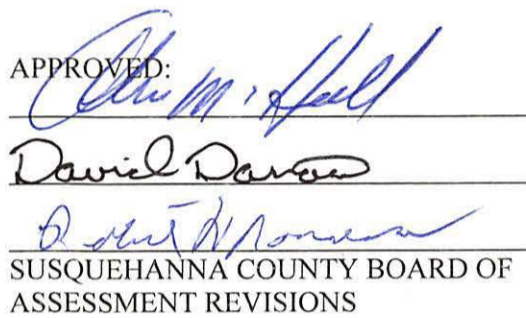 APPROVED:
M. Hall
David
Robert
SUSQUEHANNA COUNTY BOARD OF
ASSESSMENT REVISIONS